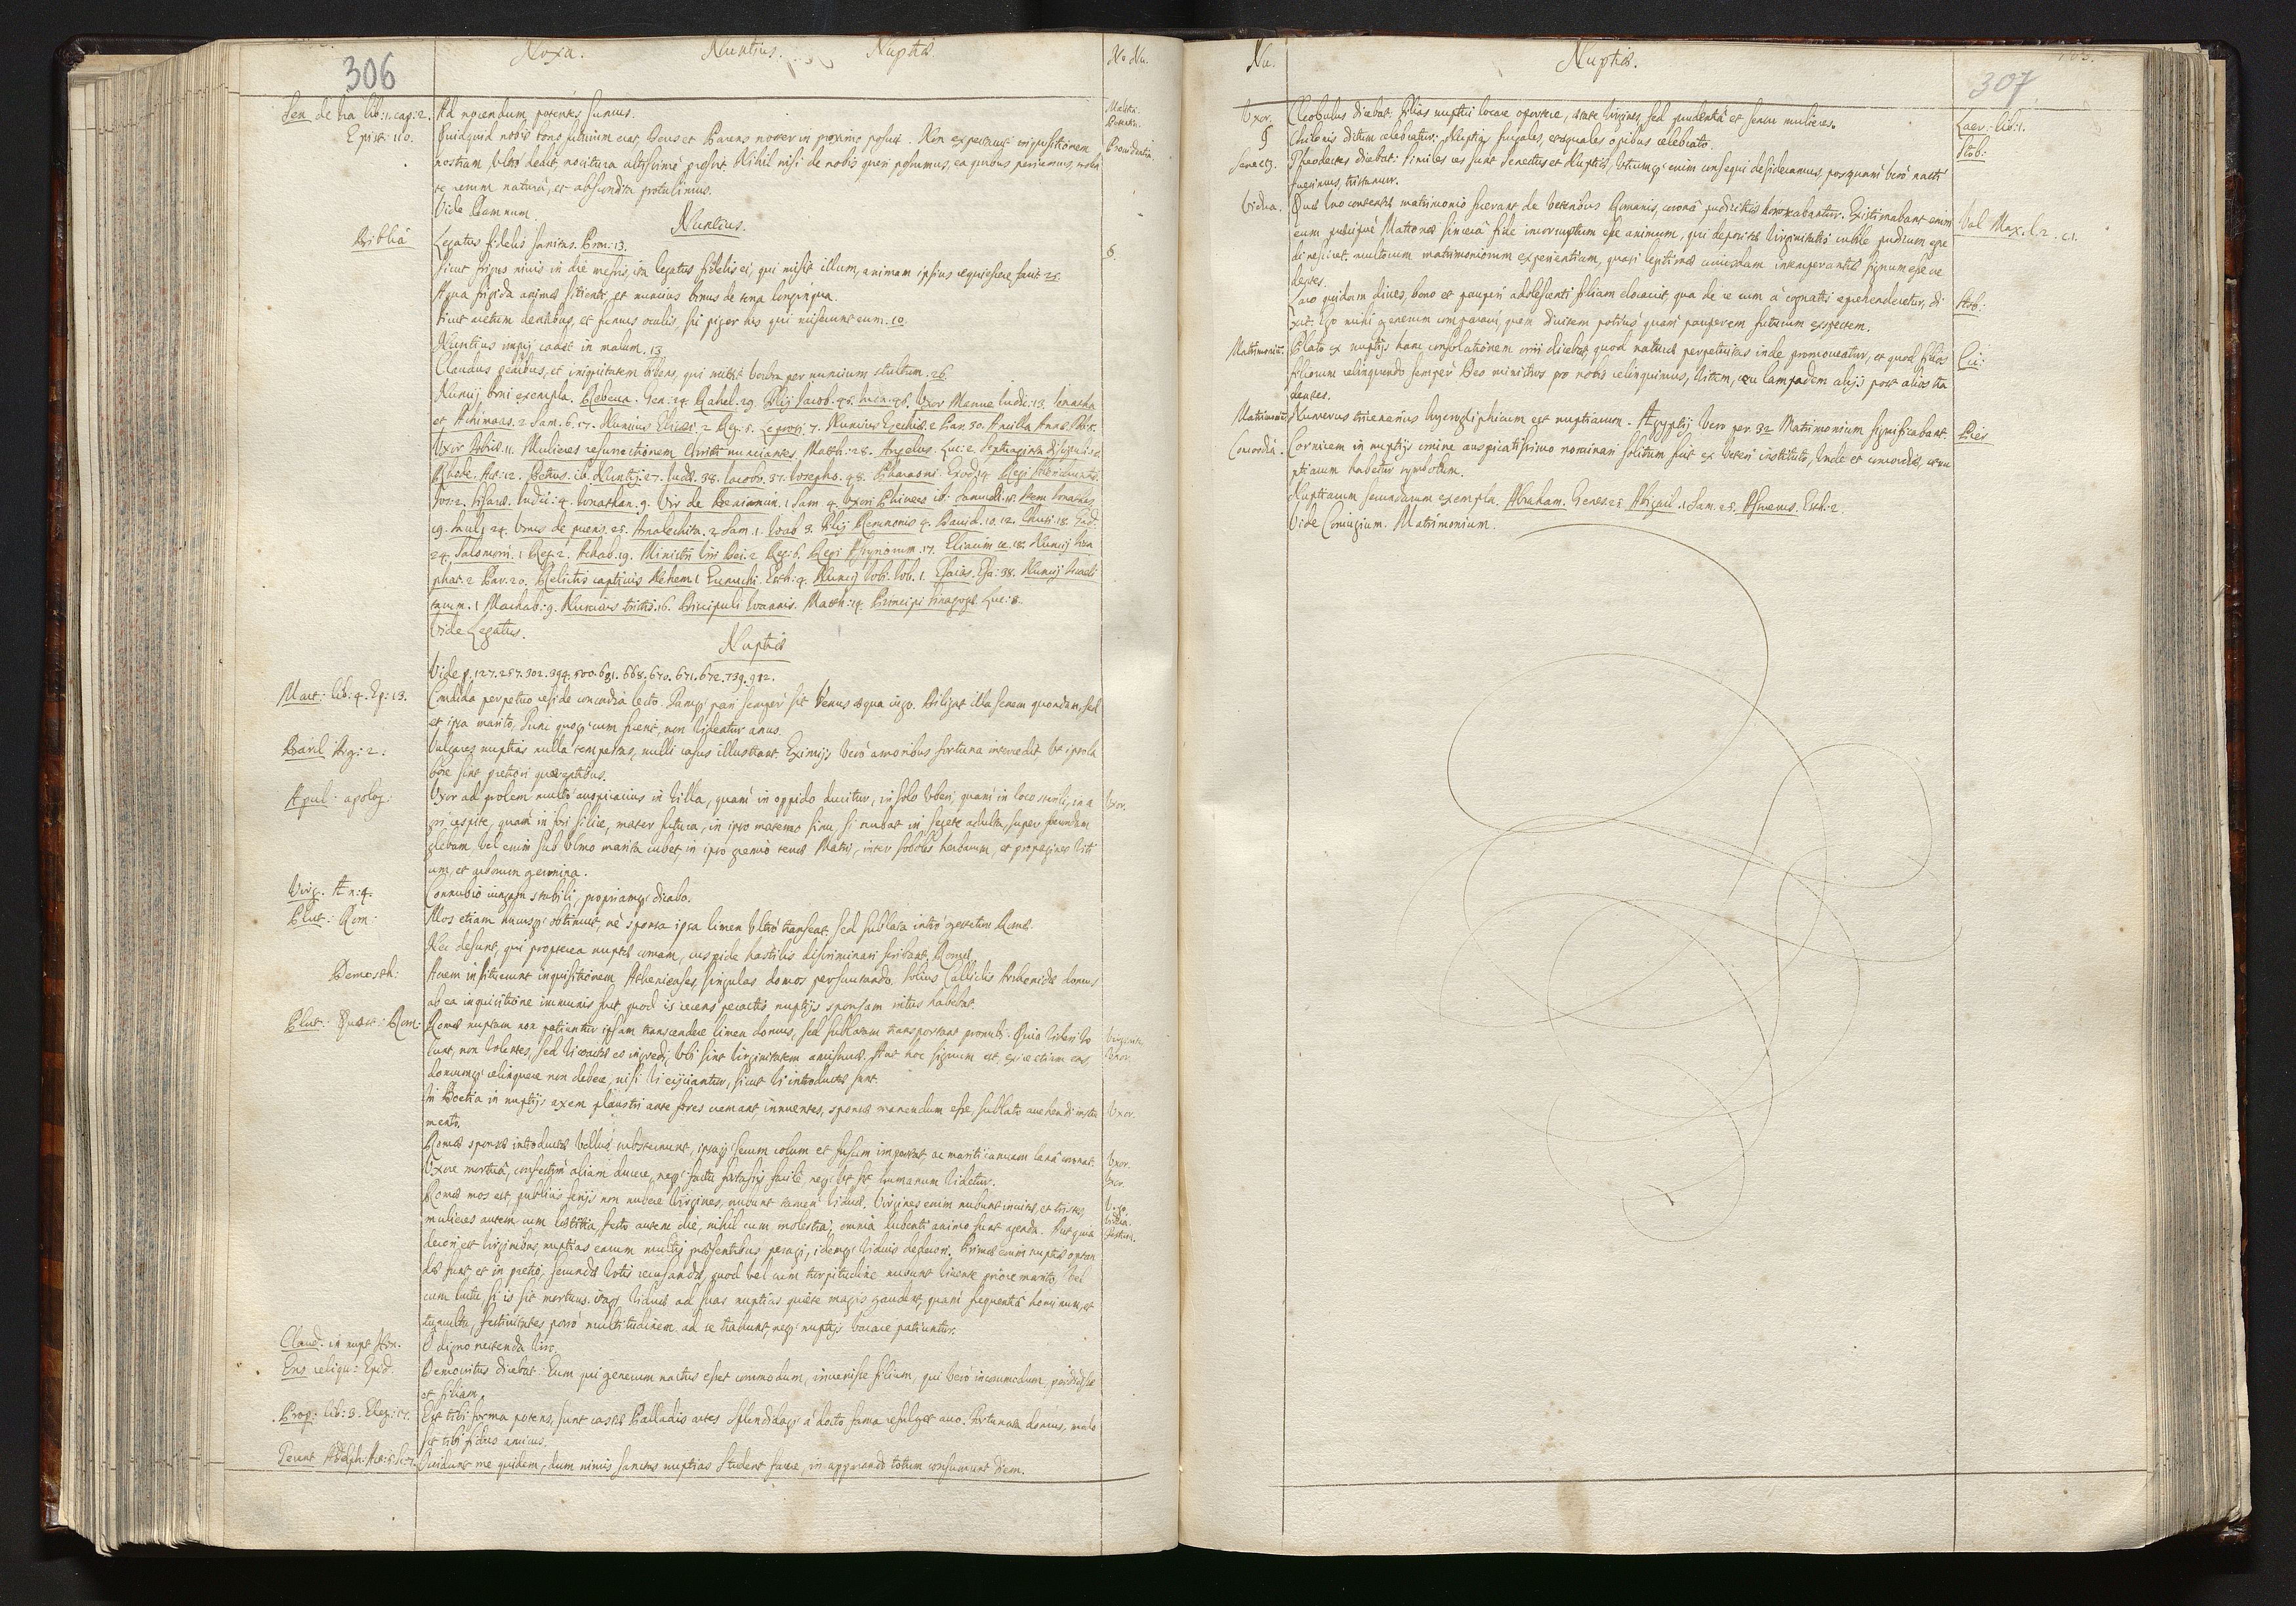 306
Noxa. Nuntius. Nuptiæ No Nu.
Sen de ira lib: 1. cap: 2. Ad nocendum potentes sumus.
Epist: 110. Quidquid nobis bono futurum erat, Deus et Parens noster in proximo posuit. Non expectavit inquisitionem Providentia.
nostram, ultro dedit, nocitura altissimè pressit. Nihil nisi de nobis queri possumus, ea quibus periremus, nolen
te rerum naturâ, et abscondita protulimus.
Vide Damnum.
Nuntius.
Biblia Legatus fidelis sanitas. Prov: 13.
Sicut frigus nivis in die messis, ita legatus fidelis ei, qui misit illum, animam ipsius requiescere facit 25.
Aqua frigida animæ sitienti, et nuncius bonus de terra longinqua.
Sicut acetum dentibus, et fumus oculis, sic piger his qui miserunt eum. 10
Nuntius impij cadet in malum. 13
Claudus pedibus, et iniquitatem bibens, qui mittit verba per nuncium stultum. 26.
Nuncij boni exempla. Rebecca. Gen: 24. Rahel. 29. Filij Jacob. 45. Juda. 46. Uxor Manue Judic: 13. Jonathan
et Achimaas. 2 Sam. 6. 17. Nuncius Elisæi. 2 Reg: 5. Leprosi. 7. Nuncius Ezechiæ. 2 Par. 30. Ancilla Annæ Tob: 5.
Uxor Tobiæ. 11. Mulieres resurrectionem Christi nunciantes Matth: 28. Angelus. Luc: 2. Septuaginta discipuli
Rhode. Act: 12. Petrus. ib. Nuntij. 27. Judæ. 38. Jacobo. 37. Josepho. 48. Pharaoni. Exod: 14
Jos: 2. Sisaræ. Judic: 4. Jonathan. 9. Vir de Beniamin. 1 Sam 4. Uxori Phinees ib: Samueli. 15. Item
19. Saul, 24. Unus de pueris. 25. Amalechita. 2 Sam. 1. Joab 3. Filij Remmonis 4. David. 10. 12. Chusi. 18. Gad.
24. Salomoni. 1 Reg. 2. Achab. 19. Ministri Viri Dei. 2 Reg: 6. Regi Assyriorum. 17. Eliacim &c. 18. Nuncij Iosa
phat. 2 Par. 20. Relictis captivis Nehem. 1 Eunuchi. Esth: 4. Nuncij Iobi. Iob. 1. Esaias. Esa: 38. Nuncij Israeli
tarum. 1 Machab: 9. Nuncius tristis. 16. Discipuli Ioannis. Matth: 14. Principi sinagogæ Luc: 8.
Vide Legatus.
Nuptiæ
Vide p. 127. 257. 302. 394. 500. 631. 668. 670. 671. 672. 739. 912.
Mart: lib: 4. Ep: 13. Candida perpetuo reside concordia lecto. Tamque pari semper sit Venus æqua iugo. Diligat illa senem quondam, sed
et ipsa marito, Tunc quoque cum fuerit, non videatur anus.
Barcl Arg: 2: Vulgares nuptias nulla tempestas, nulli casus illustrant. Eximijs verò amoribus fortuna intercedit, ut ipso la
bore sint pretiosi quærentibus.
Apul: apolog: Uxor ad prolem multò auspicatius in villa, quam in oppido ducitur, in solo uberi, quam in loco sterili, in a Uxor.
gri cespite, quam in fori silice, mater futura, in ipso materno sinu, si nubat in segete adulta, super fecundam
glebam, vel enim sub ulmo marita cubet, in ipso gremio terræ Matris, inter soboles herbarum, et propagines viti
um, et arborum germina.
Virg. Æn: 4. Connubio iungam stabili, propriamque dicabo.
Plut: Rom: Mos etiam nuncque obtinuit, ne sponsa ipsa limen ultrò transeat, sed sublata intrò gestetur Romæ.
Nec desunt, qui propterea nuptæ comam, cuspide hastilis discriminari scribant Romæ.
Demosth: inquisitionem Athenienses, singulas domos perscrutando. Solius Callidis Archenidæ domus
ab ea inquisitione immunis fuit, quod is recens peractis nuptijs sponsam intus habebat.
Plut: Quæst: Rom: Romæ nuptam non patiuntur ipsam transcendere limen domus, sed sublatam transportant pronubi. Quia videri vo
lunt, non volentes, sed vi coactas eo ingredi, ubi sint virginitatem amissuræ. Aut hoc signum est, exire etiam eas Uxor.
domumque relinquere non debere, nisi vi eijciantur, sicut vi introductæ sunt.
In Boetia in nuptijs axem plaustri ante fores cremant innuentes, sponsæ manendum esse, sublato avehendi instru Uxor.
mento.
Romæ sponsæ introductæ vellus substernunt, ipsaque secum colum et fusum importat ac mariti ianuam lanâ coronat. Uxor.
Uxore mortuâ, confestim aliam ducere, neque factu fortassis facile, neque ut sit humanum videtur. Uxor.
Romæ mos est, publicis ferijs non nubere virgines, nubunt tamen viduæ. Virgines enim nubunt invitæ, et tristes, Virgo.
mulieres autem cum lætitia, festo autem die, nihil cum molestia, omnia lubenti animo sunt agenda. Aut quia Vidua.
decori est virginibus, nuptias earum multis præsentibus peragi, idemque viduis dedecori. Primæ enim nuptiæ optan
dæ sunt et in pretio, secundæ votis recusandæ, quod vel cum turpitudine nubunt vivente priore marito, vel
cum luctu, si is sit mortuus. itaque viduæ ad suas nuptias quiete magis gaudent, quam frequentia hominum, et
tumultu, festivitates porrò multitudinem ad se trahunt, neque nuptijs vacare patiuntur.
Claud. in nupt Hon. O digno nectenda viro.
Eras reliqu: Epid. Democritus dicebat: Eum qui generum nactus esset commodum, invenisse filium, qui verò incommodum, perdidisse
et filiam.
Prop: lib: 3. Eleg: Est tibi forma potens, sunt castæ Palladis artes Splendidaque a docto fama refulget avo. Fortunata domus, modo
sit tibi fidus amicus.
Terent Adelph: Act: 5. Sc: 7. Occidunt me quidem, dum nimis sanctas nuptias student facere, in apparando totum consumunt diem.
Nu. Nuptiæ. 307
Uxor. Cleobulus dicebat: Filias nuptui locare oportere, ætate virgines, sed prudentiâ et sensu mulieres. Laer: lib: 1.
§ Chilonis dictum celebratur: Nuptias frugales, et æquales opibus celebrato. Stob:
Senectus. Theodectes dicebat: similes res sunt Senectus et Nuptiæ, Utrumque enim consequi desideramus, posquam verò nacti
fuerimus, tristamur.
Vidua. Quæ uno contentæ matrimonio fuerant de veteribus Romanis, coronâ pudicitiæ honorabantur. Existimabant enim Val Max. l. 2. c. 1.
eum præcipuè Matronæ sincerâ fide incorruptum esse animum, qui depositæ virginitatis cubile pudicum esse
di nesciret. multorum matrimoniorum experientiam, quasi legitimæ cuiusdam intemperantiæ signum esse cre
dentes.
Laco quidam dives, bono et pauperi adolescenti filiam elocavit, qua de re cum à cognatis reprehenderetur, di Stob:
xit. Ego mihi generum comparavi, quem divitem potiùs quam pauperem futurum exspectem.
Matrimonium. Plato ex nuptijs hanc consolationem oriri dicebat, quod naturæ perpetuitas inde promoveatur, et quod filios
filiorum relinquendo semper Deo ministros pro nobis relinquimus, vitam, ceu lampadem alijs post alios tra
dentes.
Matrimonium. Numerus tricenarius hyeroglyphicum est nuptiarum. Ægyptij vero per 32 Matrimonium significabant. Pier
Concordia. Cornicem in nuptijs omine auspicatissimo nominari solitum fuit ex veteri instituto, Unde et concordiæ, et nu
ptiarum habetur symbolum.
Nuptiarum secundarum exempla. Abraham. Genes: 25. Abigail. 1 Sam. 25. Assuerus. Esth: 2.
Vide Coniugium. Matrimonium.